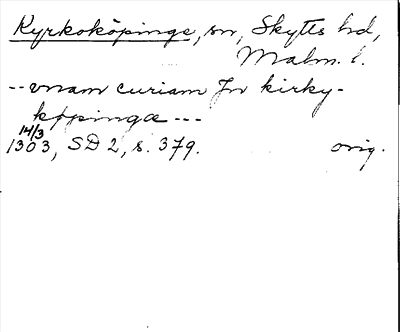 Kyrkoköpinge, sn, Skytts hd,
Malm. l.
-- vnam curiam Jn kirky-
køpinga ---
14/3
1303, SD 2, s. 379. orig.